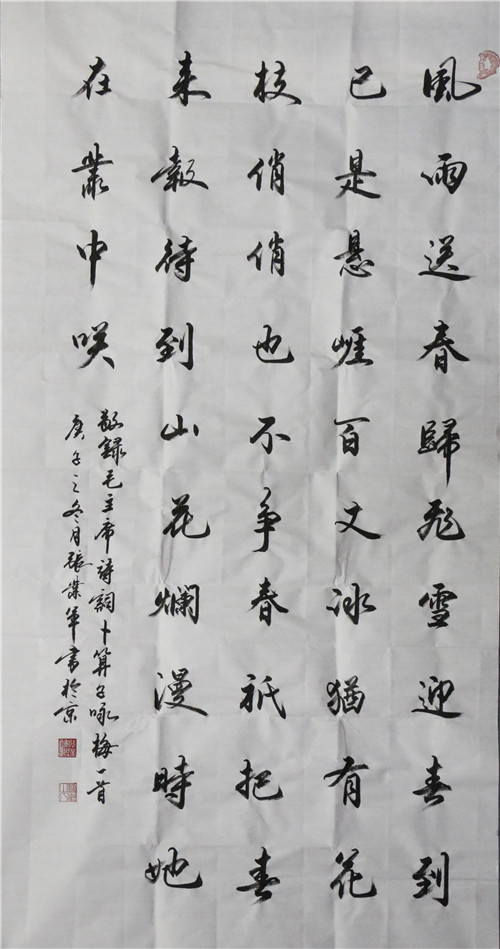 風雨送春歸飛雪迎春到
已是悬崕百丈冰猶有花
枝俏俏也不争春祇把春
来報待到山花爛漫時她
在叢中咲
敬録毛主席詩詞卜算子咏梅一首
庚子之冬月張業軍書於京